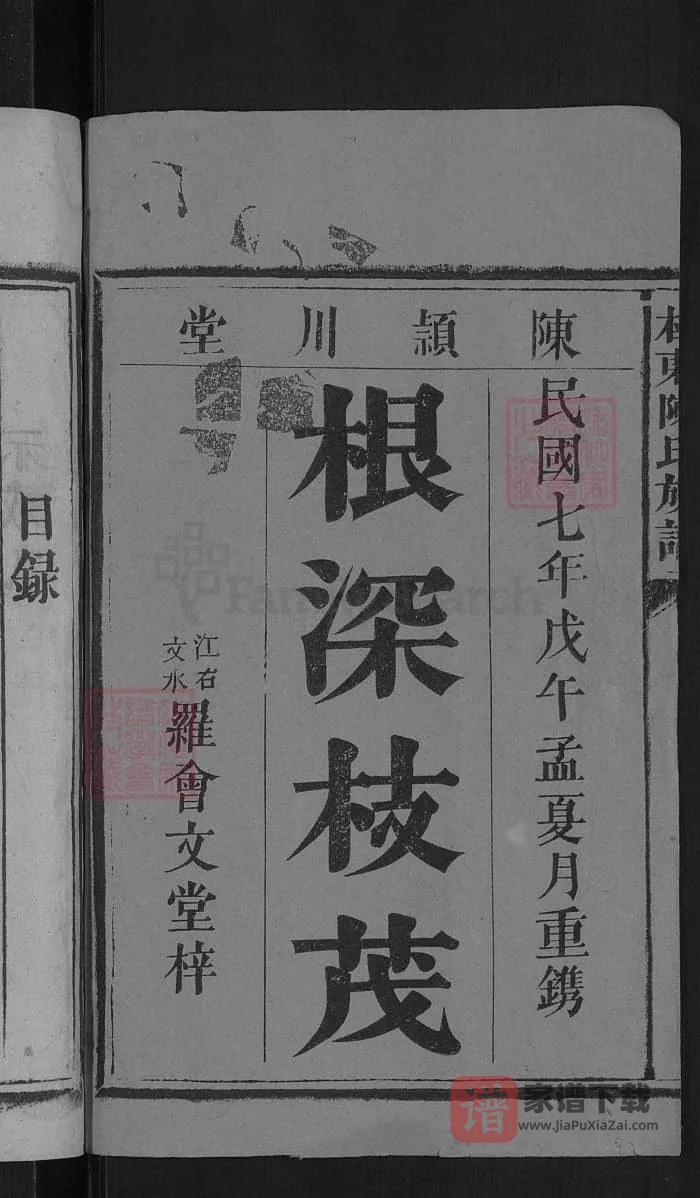 東陳氏族譜
陳潁川堂
民國七年戊午孟夏月重鐫
根深枝茂
江右
文水
羅會文堂梓
目録
FamilySearch
谱
家谱下载
www.JiaPuXiaZai.com